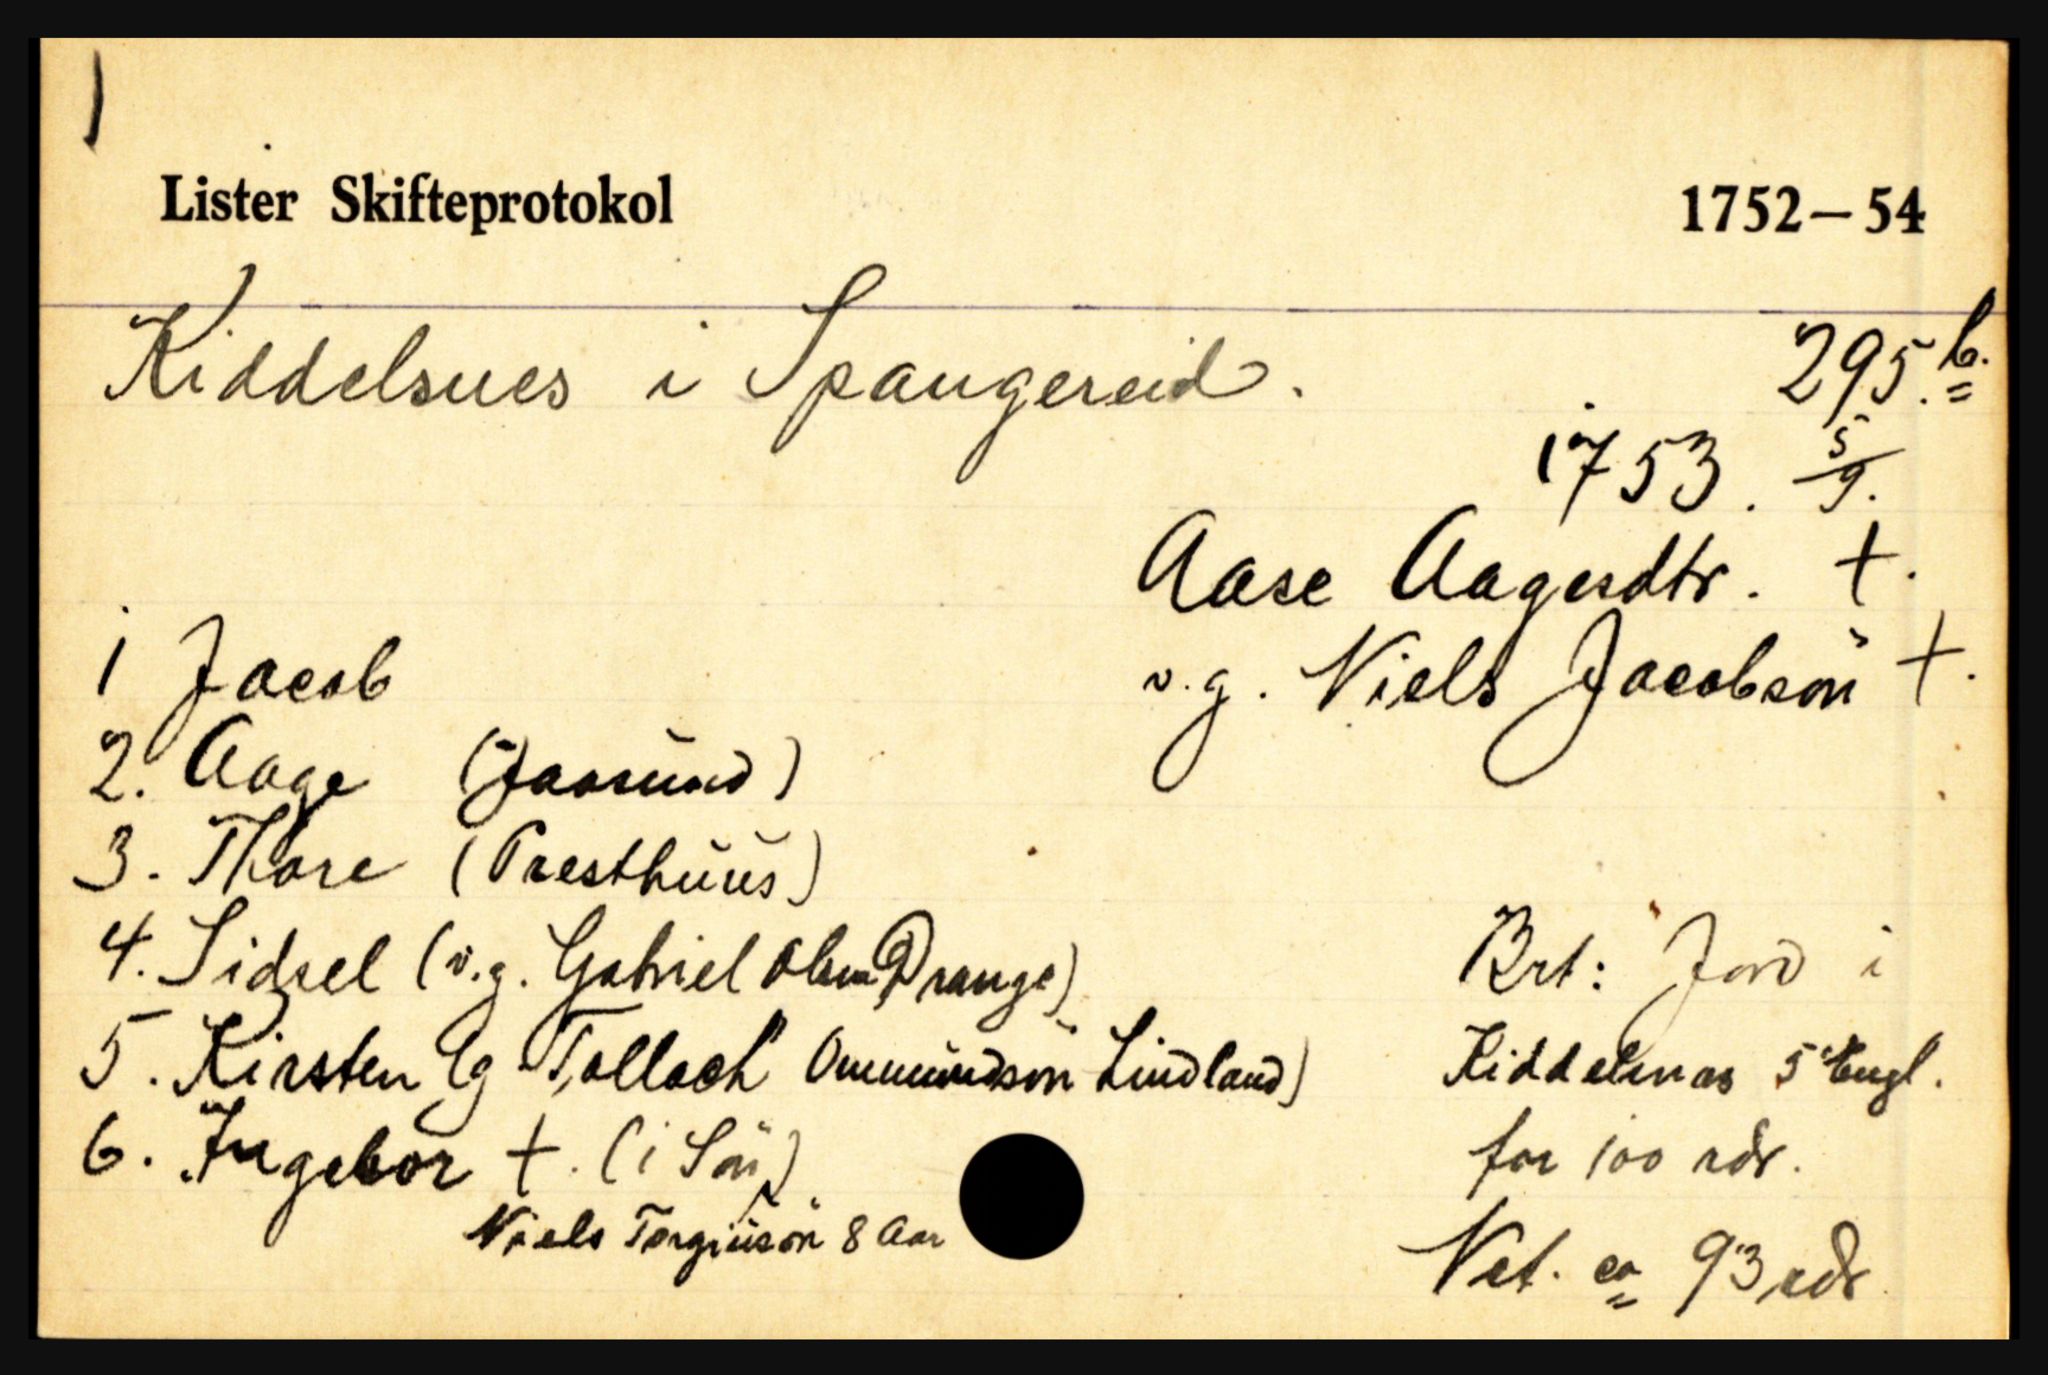 Lister Skifteprotokol 1752—54
Kiddelsnes i Spangereid. 295.b.
1753. 5/9.
Aase Aagesdtr. †.
v.g. Niels Jacobsön †.
1 Jacob
2. Aage (Jaasund)
3. Thore (Presthuus)
4. Sidsel (v.g. Gabriel Olsen Drange)
5. Kirsten (g Tollach Ommundsön Lindland)
6. Ingebor †. (1 Sön)
Niels Torgiusön 8 Aar
Brt: Jord i
Kiddelsnas 5 Engl.
for 100 rdr.
Net. ca 93 rdr